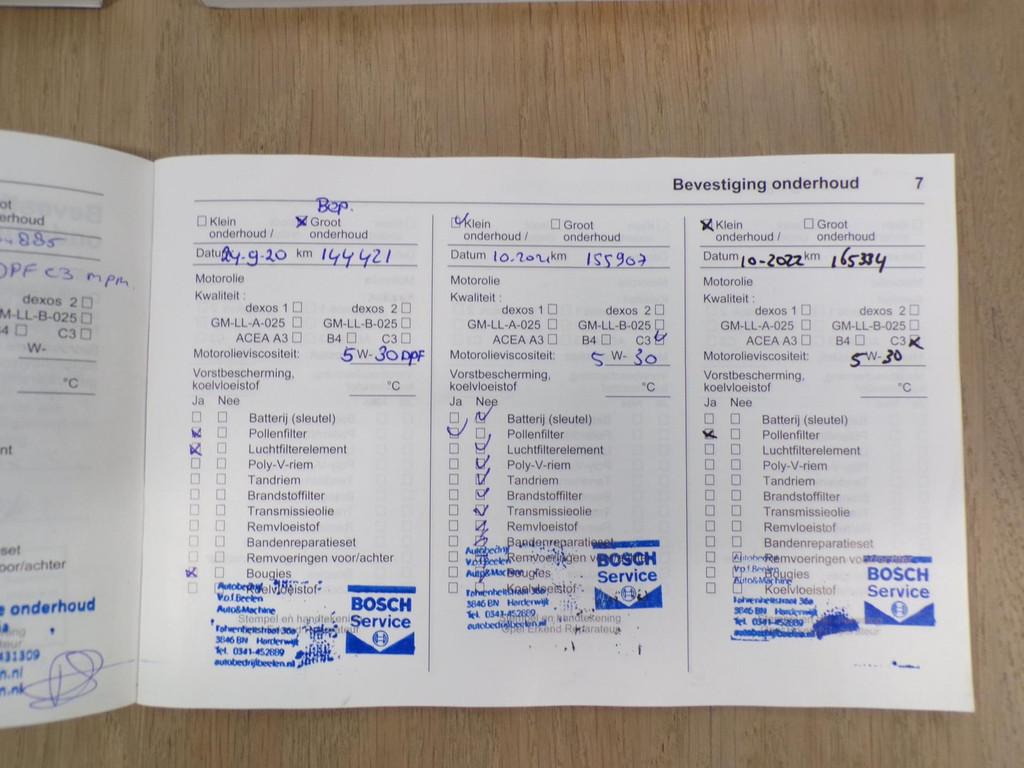 ot
erhoud
885
DPF C3 mpm
dexos 2
M-LL-B-025
34 C3
W-
°C
nt
set
oor/achter
e onderhoud
431309
n.nl
n.nl
Bevestiging onderhoud 7
Bep.
Klein Groot
onderhoud / onderhoud
Datum 24-9-20 km 144421
Motorolie
Kwaliteit :
dexos 1 dexos 2
GM-LL-A-025 GM-LL-B-025
ACEA A3 B4 C3
Motorolieviscositeit: 5 W- 30 DPF
Vorstbescherming,
koelvloeistof °C
Ja Nee
Batterij (sleutel)
Pollenfilter
Luchtfilterelement
Poly-V-riem
Tandriem
Brandstoffilter
Transmissieolie
Remvloeistof
Bandenreparatieset
Remvoeringen voor/achter
Bougies
Koelvloeistof
Stempel en handtekening
Autobedrijf
V.o.f. Beelen
Auto&Machine
Fahrenheitstraat 36a
3846 BN Harderwijk
Tel. 0341-452889
autobedrijfbeelen.nl
BOSCH
Service
Klein Groot
onderhoud / onderhoud
Datum 10.2021 km 155907
Motorolie
Kwaliteit :
dexos 1 dexos 2
GM-LL-A-025 GM-LL-B-025
ACEA A3 B4 C3
Motorolieviscositeit: 5 W- 30
Vorstbescherming,
koelvloeistof °C
Ja Nee
Batterij (sleutel)
Pollenfilter
Luchtfilterelement
Poly-V-riem
Tandriem
Brandstoffilter
Transmissieolie
Remvloeistof
Bandenreparatieset
Remvoeringen
Bougies
Koelvloeistof
Stempel en handtekening
Opel Erkend Reparateur
Autobedrijf
V.o.f. Beelen
Auto&Machine
Fahrenheitstraat 36a
3846 BN Harderwijk
Tel. 0341-452889
autobedrijfbeelen.nl
BOSCH
Service
Klein Groot
onderhoud / onderhoud
Datum 10-2022 km 165334
Motorolie
Kwaliteit :
dexos 1 dexos 2
GM-LL-A-025 GM-LL-B-025
ACEA A3 B4 C3
Motorolieviscositeit: 5 W- 30
Vorstbescherming,
koelvloeistof °C
Ja Nee
Batterij (sleutel)
Pollenfilter
Luchtfilterelement
Poly-V-riem
Tandriem
Brandstoffilter
Transmissieolie
Remvloeistof
Bandenreparatieset
Remvoeringen voor/achter
Bougies
Koelvloeistof
Autobedrijf
V.o.f. Beelen
Auto&Machine
Fahrenheitstraat 36a
3846 BN Harderwijk
Tel. 0341-452889
autobedrijfbeelen.nl
BOSCH
Service